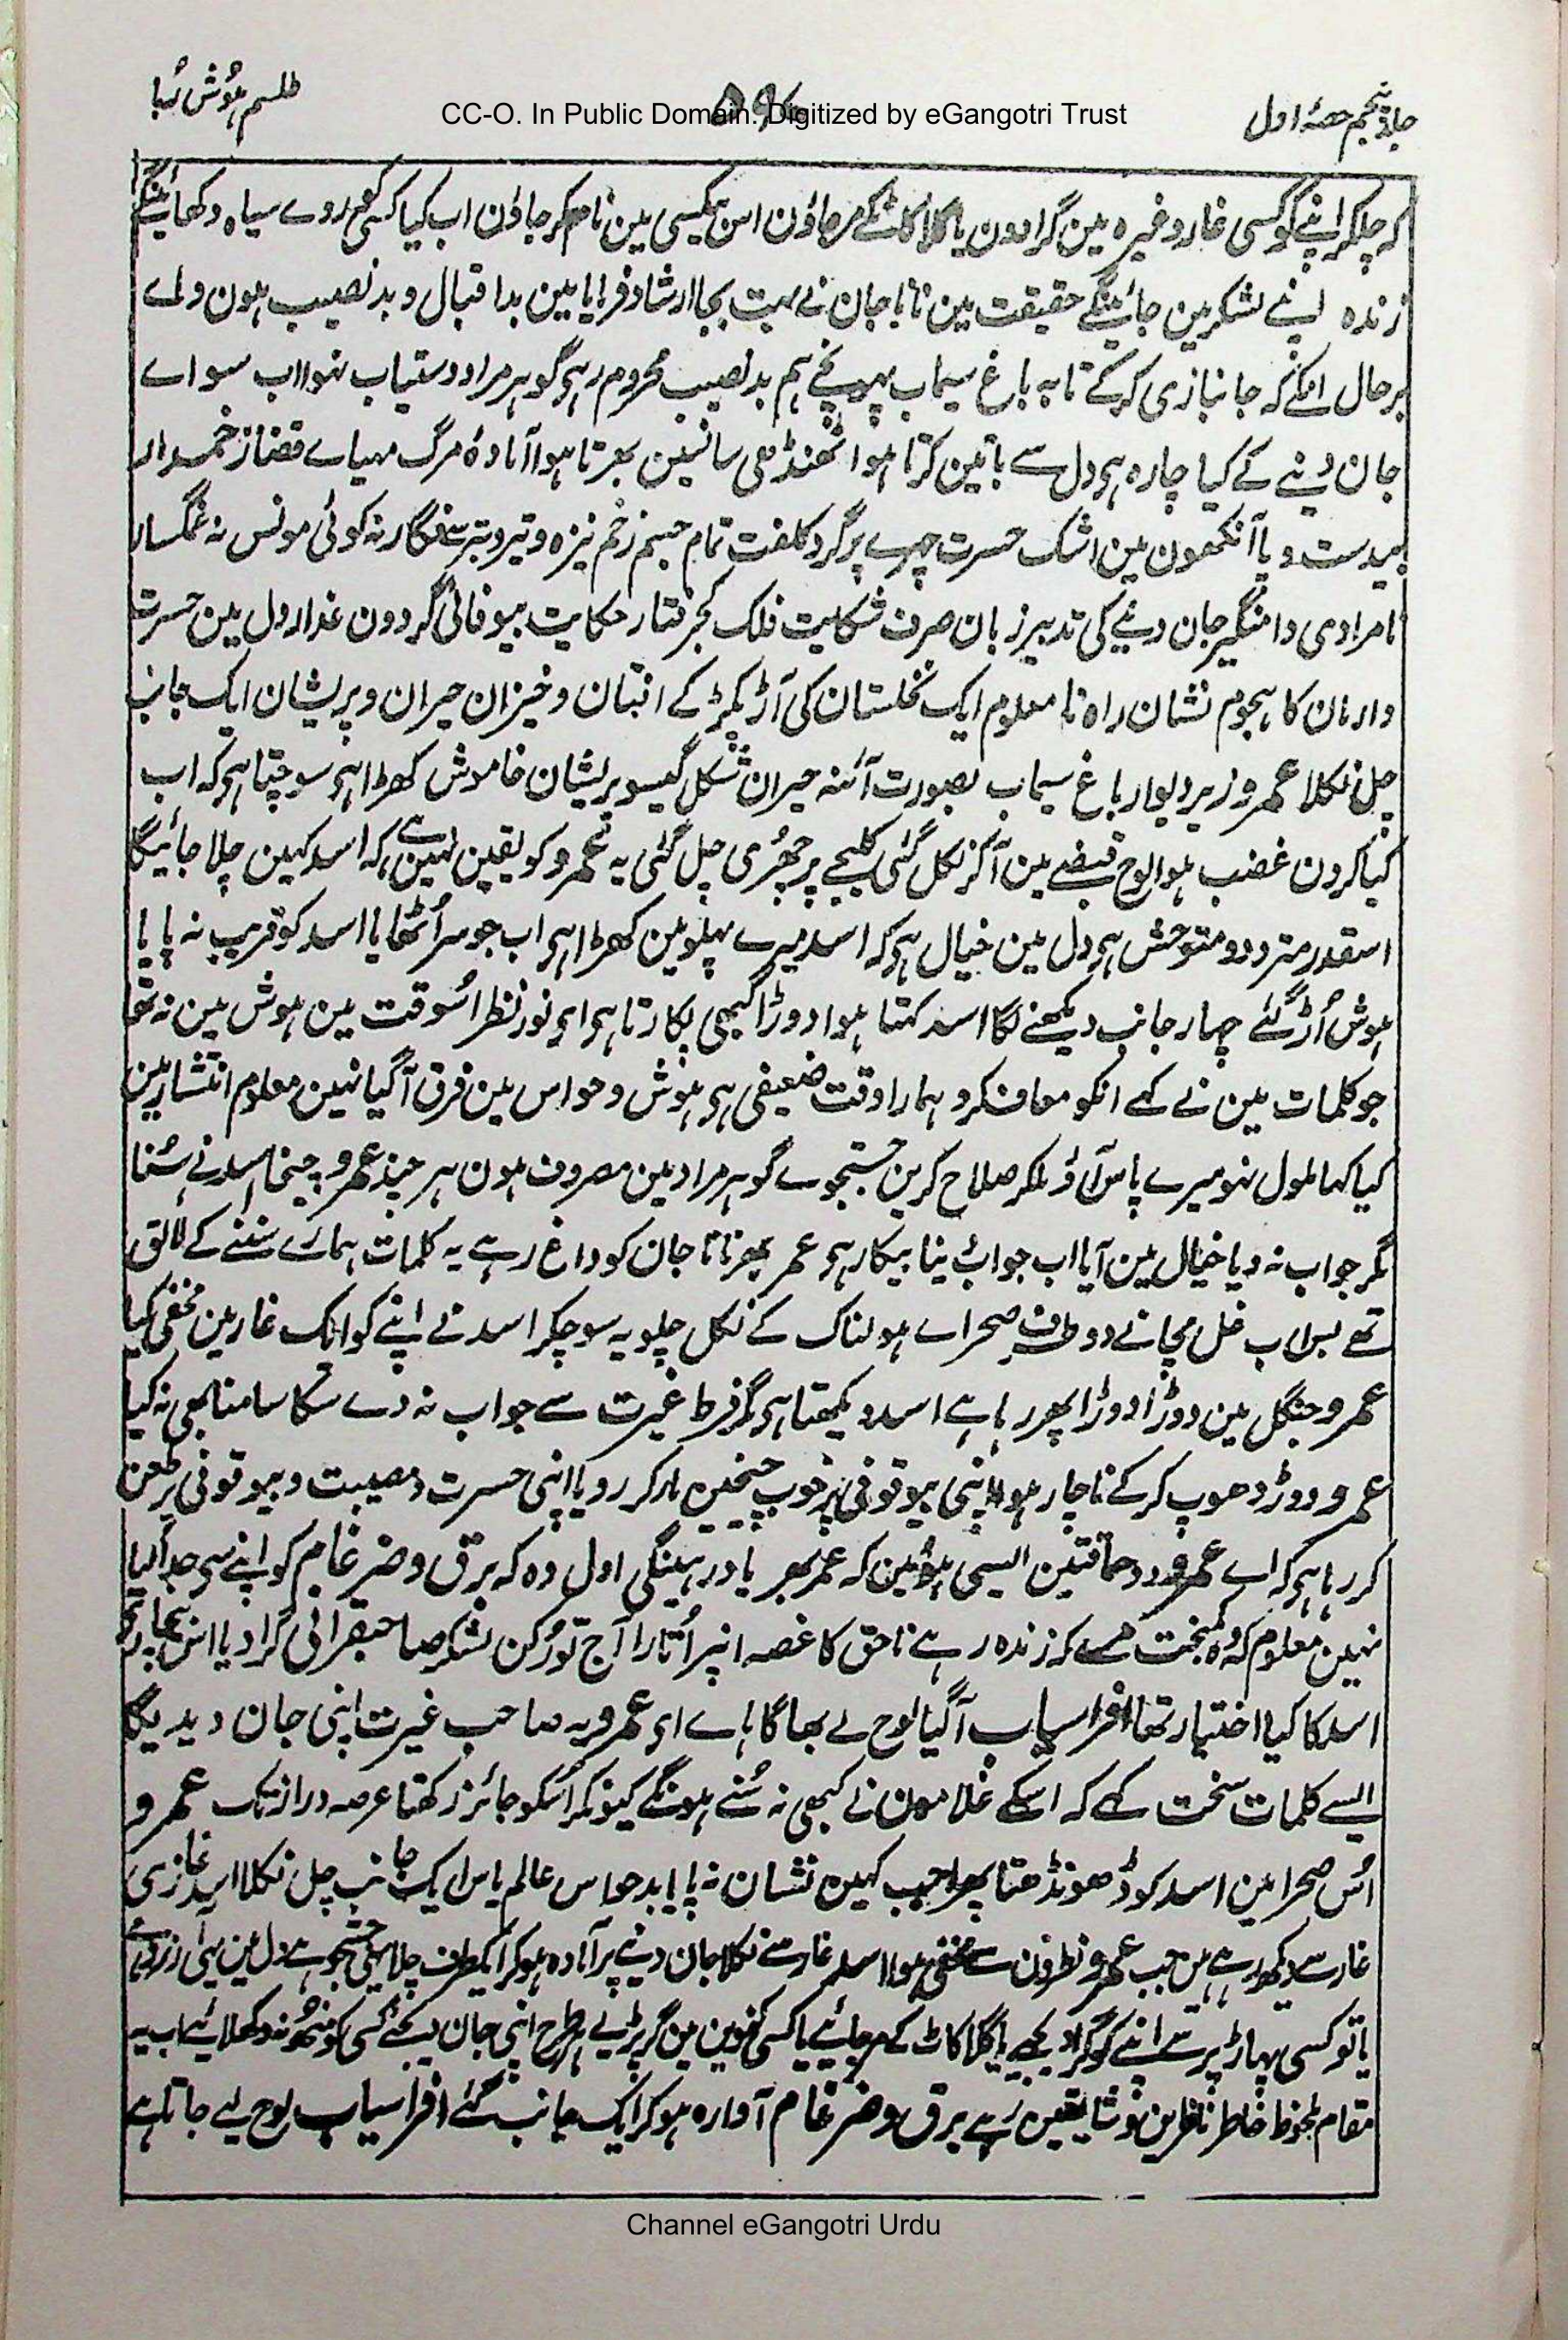 جلد پنجم حصۂ اول
طلسم ہوش رُبا
CC-O. In Public Domain. Digitized by eGangotri Trust
کہ چلکر اپنے کو کسی غار وغیرہ مین گرا دون یا گلا کاٹکے مرجاؤن اس بیکسی مین نام کرجاؤن اب کیا روے سیاہ دکھائینگے
زندہ اپنے لشکر مین جائینگے حقیقت مین نانا جان نے بہت بجا ارشاد فرمایا مین بد اقبال و بد نصیب ہون واے
برحال انکے کہ جانبازی کرکے تا بہ باغ سیماب پہونچے ہم بد نصیب محروم رہے گوہر مراد دستیاب نہوا اب سواے
جان دینے کے کیا چارہ ہے دل سے باتین کرتا ہوا ٹھنڈی سانسین بھرتا ہوا آمادۂ مرگ مہیاے قضا زخمدار
بیدست و پا آنکھون مین اشک حسرت چہرے پر گرد کلفت تمام جسم زخم نیزہ و تیر و تبر سے فگار نہ کوئی مونس نہ غمگسار
نامرادی دامنگیر جان دینے کی تدبیر زبان صرف شکایت فلک کجرفتار حکایت بیوفائی گردون غدار دل مین حسرت
و ارمان کا ہجوم نشان راہ نا معلوم ایک نخلستان کی آڑ پکڑ کے افتان و خیزان حیران و پریشان ایک جانب
چل نکلا عمرو زیر دیوار باغ سیماب بصورت آئنہ حیران شکل گیسو پریشان خاموش کھڑا ہے سوچتا ہے کہ اب
کیا کرون غضب ہوا لوح قبضے مین آکر نکل گئی کلیجے پر چھُری چل گئی یہ عمرو کو یقین نہین ہے کہ اسد کہین چلا جائیگا
اسقدر متردد و متوحش ہے دل مین خیال ہے کہ اسد میرے پہلو مین کھڑا ہے اب جو سر اُٹھایا اسد کو قریب نہ پایا
ہوش اُڑ گئے چہار جانب دیکھنے لگا اسد کہتا ہوا دوڑا کبھی پکارتا ہے اے نور نظر اُسوقت مین ہوش مین نہ تھا
جو کلمات مین نے کہے انکو معاف کرو ہمارا وقت ضعیفی ہے ہوش و حواس مین فرق آگیا نہین معلوم انتشار مین
کیا کہا ملول نہو میرے پاس آؤ ملکر صلاح کرین جستجوے گوہر مراد مین مصروف ہون ہر چند عمرو چیخا اسد نے سُنا
مگر جواب نہ دیا خیال مین آیا اب جواب دینا بیکار ہے عمر بھر نانا جان کو داغ رہے یہ کلمات ہمارے سننے کے لائق
تھے بس اب غل مچانے دو طرف صحراے ہولناک کے نکل چلو یہ سوچکر اسد نے اپنے کو ایک غار مین مخفی کیا
عمرو جنگل مین دوڑا دوڑا پھر رہا ہے اسد دیکھتا ہے مگر فرط غیرت سے جواب نہ دے سکا سامنا بھی نہ کیا
عمرو دوڑ دھوپ کرکے ناچار ہوا اپنی بیوقوفی پر خوب چیخین مارکر رویا اپنی حسرت و مصیبت و بیوقوفی پر طعن
کر رہا ہے کہ اے عمرو دو حماقتین ایسی ہوئین کہ عمر بھر یاد رہینگی اول وہ کہ برق و ضرغام کو اپنے سے جدا کیا
نہین معلوم کہ وہ کمبخت مرے کہ زندہ رہے ناحق کا غصہ انپر اُتارا آج تو رُکن لشکر صاحبقرانی گرا دیا اس بیچارے
اسد کا کیا اختیار تھا افراسیاب آگیا لوح لے بھاگا ہاے اے عمرو یہ صاحب غیرت اپنی جان دیدیگا
ایسے کلمات سخت کہے کہ اسکے غلامون نے کبھی نہ سُنے ہونگے کیونکر اُسکو جائز رکھتا عرصہ دراز تک عمرو
اُس صحرا مین اسد کو ڈھونڈھتا پھرا جب کہین نشان نہ پایا بدحواس عالم یاس ایک جانب چل نکلا اسد غازی
غار سے دیکھ رہے ہین جب عمرو نظرون سے مخفی ہوا اسد غار سے نکلا جان دینے پر آمادہ ہوکر ایکطرف چلا یہی جستجو ہے دل مین یہی آرزو ہے
یا تو کسی پہاڑ پر سے اپنے کو گرا دیجیے یا گلا کاٹ کے مرجائیے یا کسی کنوین مین گر پڑیے اسطرح اپنی جان دیجئے کسی کو منھ نہ دکھلائیے اب یہ
مقام ملحوظ خاطر ناظرین و شایقین رہے برق و ضرغام آوارہ ہوکر ایک جانب گئے افراسیاب لوح لیے جاتا ہے
Channel eGangotri Urdu